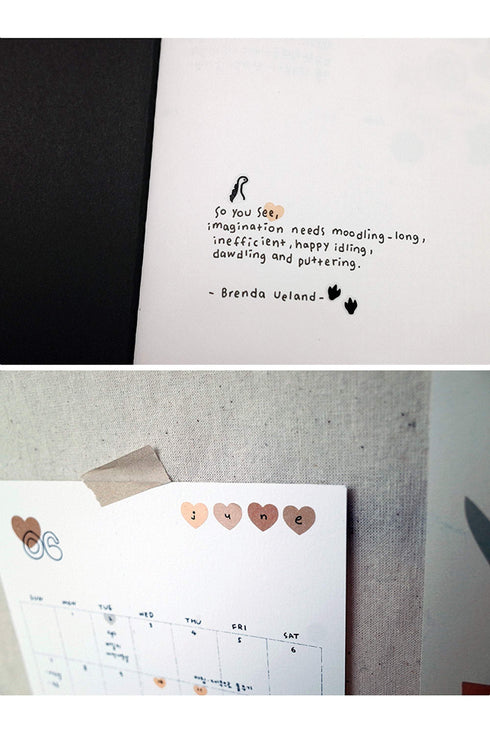 So you see,
imagination needs moodling-long,
inefficient, happy idling,
dawdling and puttering.
- Brenda Ueland -
june
06
SUN MON TUE WED THU FRI SAT
1 2 3 4 5 6